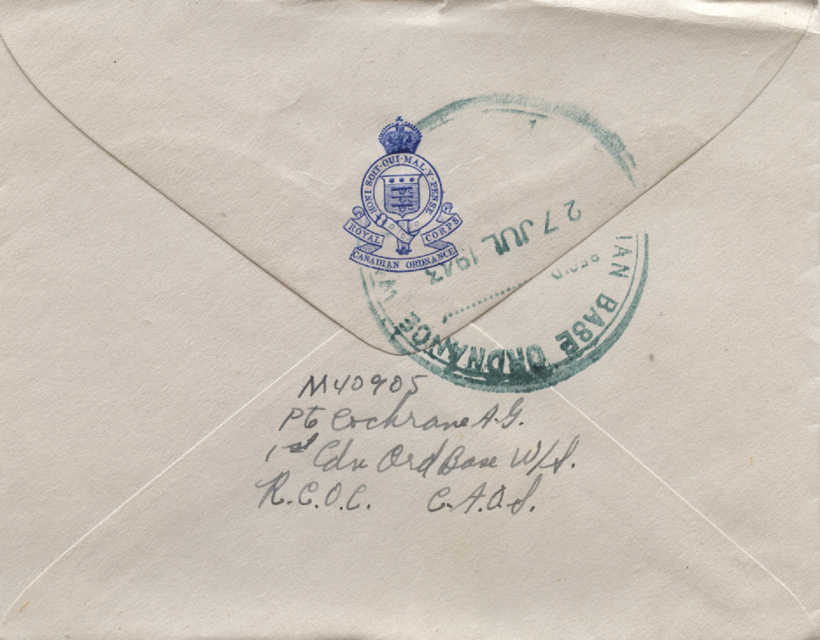 HONI·SOIT·QUI·MAL·Y·PENSE
ROYAL CORPS
CANADIAN ORDNANCE
27 JUL 1943
REC'D
IAN BASE ORDNANCE W
M40905
Pte Cochrane A.G.
1st Cdn Ord Base W/S.
R.C.O.C. C.A.O.S.